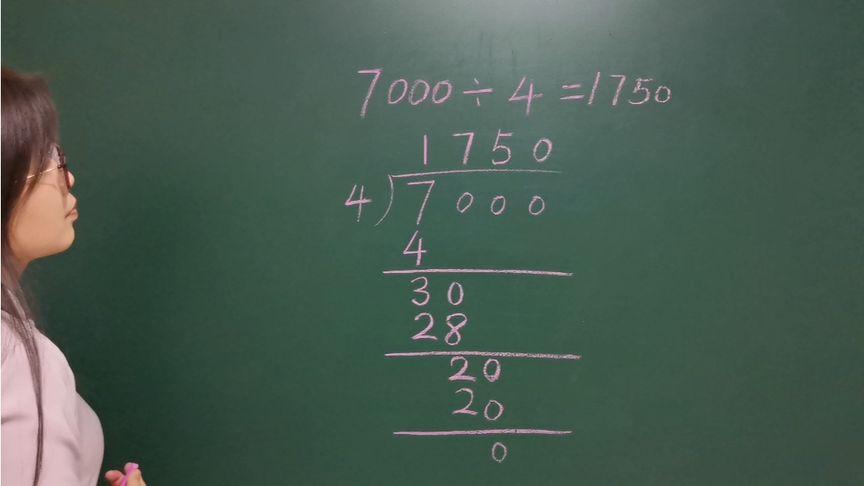 7000÷4=1750
1750
4)7000
4
30
28
20
20
0